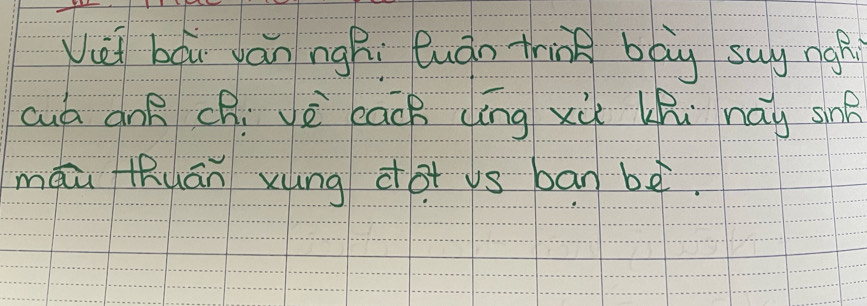 Viết bài văn nghị luận trình bày suy nghĩ
của anh chị về cách ứng xử khi nảy sinh
mâu thuẫn xung đột vs bạn bè.